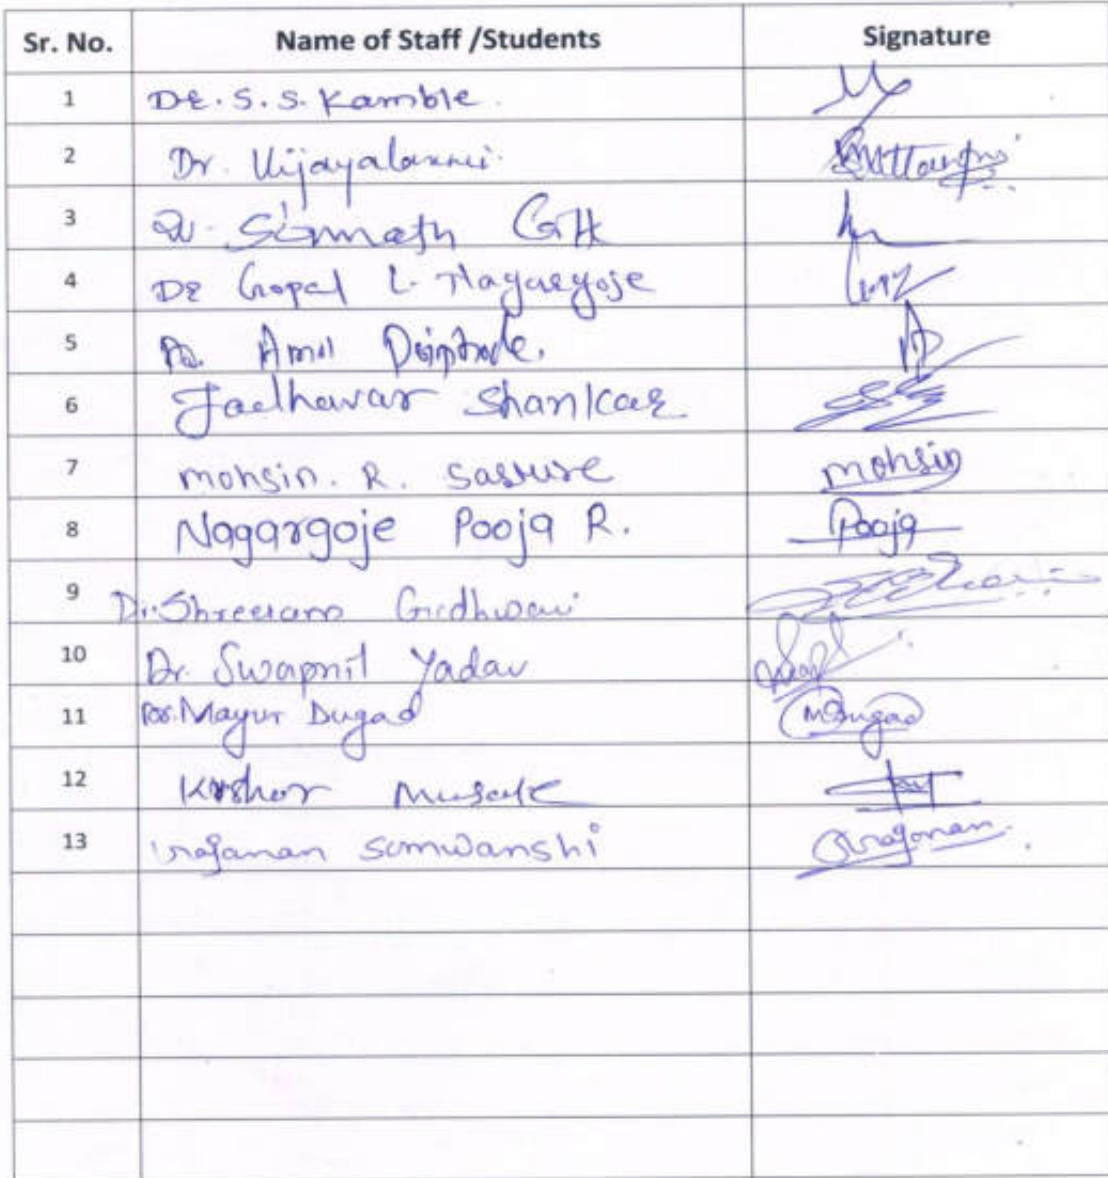 Sr. No. Name of Staff /Students Signature
1 Dr. S. S. Kamble
2 Dr. Vijayalaxmi
3 Dr.
4 Dr Gopal L. Nagargoje
5 Dr. Amol
6 Jadhavar Shankar
7 mohsin. R. Sasture mohsin
8 Nagargoje Pooja R. Pooja
9 Dr. Shreeram
10 Dr. Swapnil Yadav
11 Dr. Mayur Dugad MDugad
12 Kishor Musale
13 Gajanan Somwanshi Gajanan